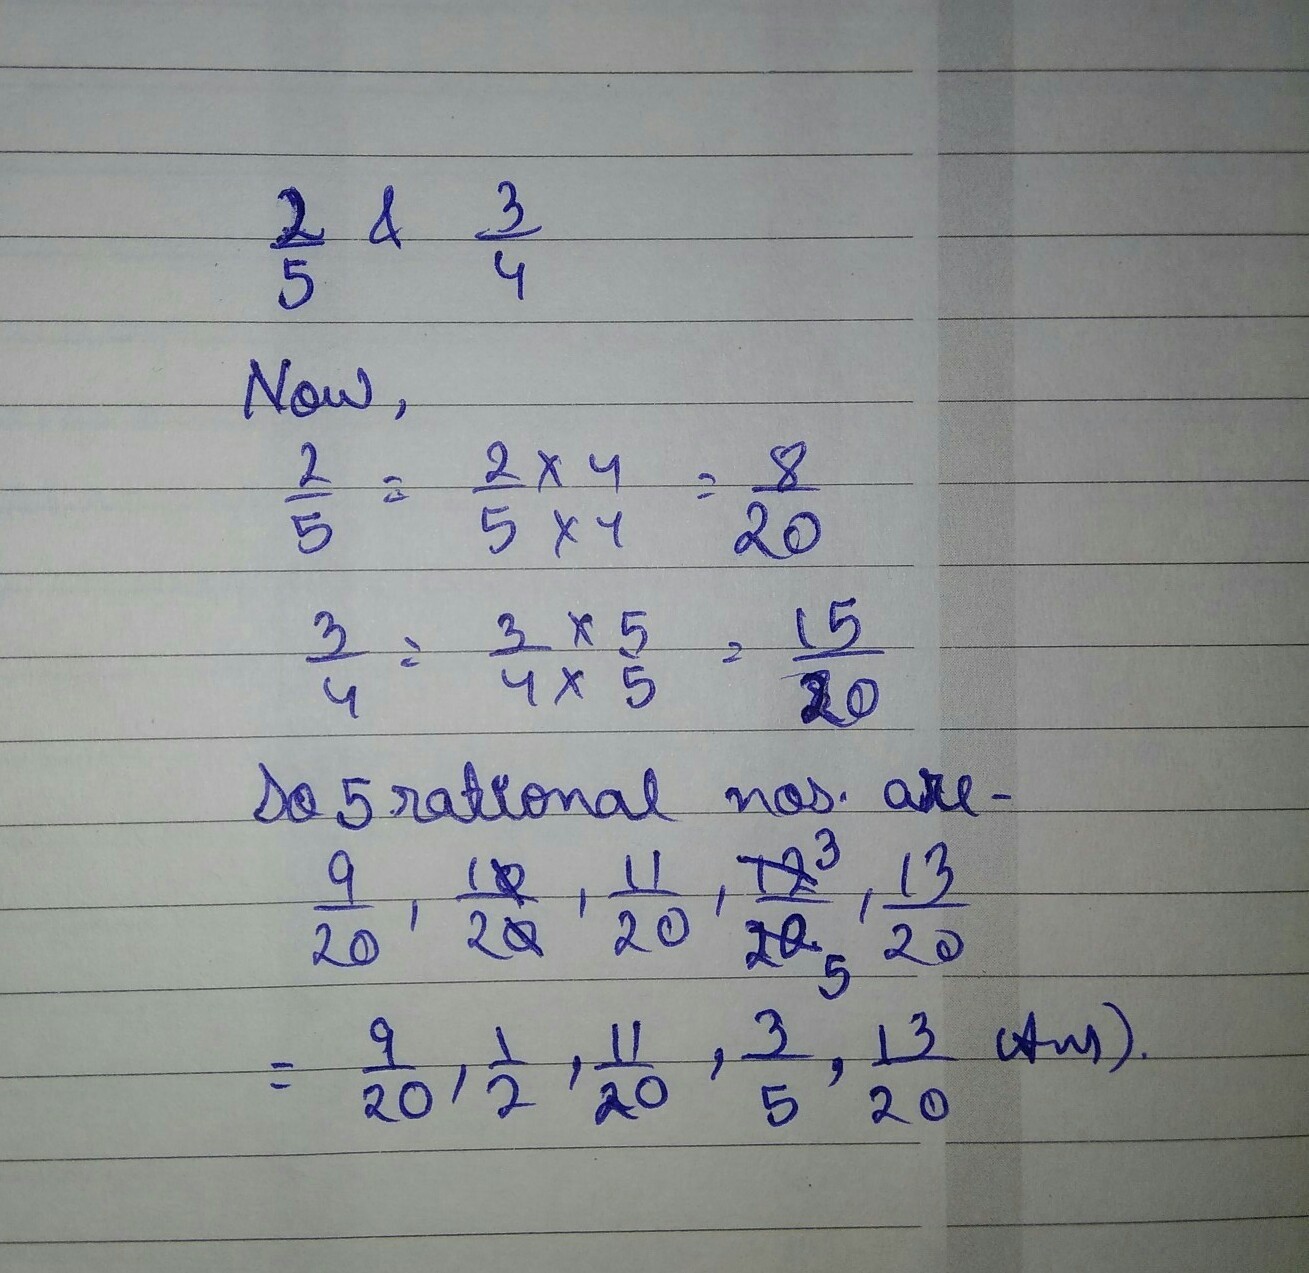 2/5 & 3/4
Now,
2/5 = 2 x 4/5 x 4 = 8/20
3/4 = 3 x 5/4 x 5 = 15/20
So 5 rational nos. are-
9/20, 10/20, 11/20, 12/20 3/5, 13/20
= 9/20, 1/2, 11/20, 3/5, 13/20 (Ans).